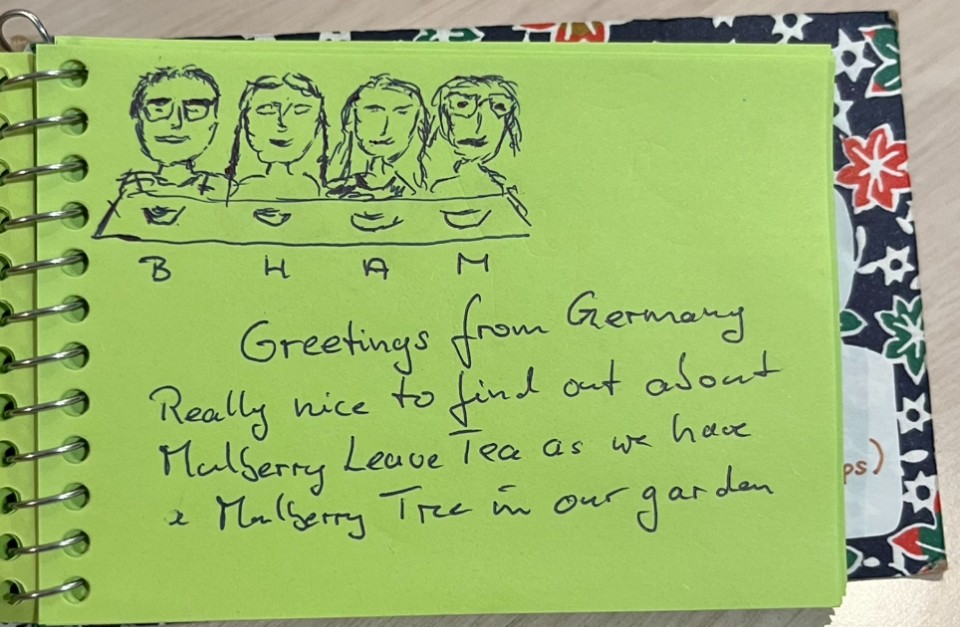 B H A M
Greetings from Germany
Really nice to find out about
Mulberry Leave Tea as we have
a Mulberry Tree in our garden
ps)